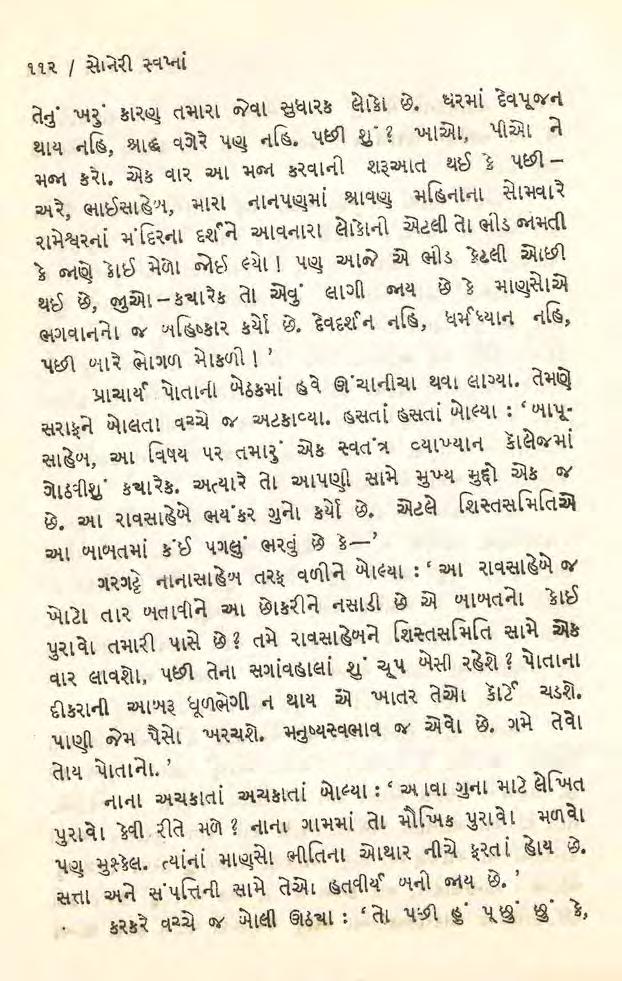 ૧૧૨ / સોનેરી સ્વપ્નાં
તેનું ખરું કારણ તમારા જેવા સુધારક લોકો છે. ઘરમાં દેવપૂજન
થાય નહિ, શ્રાદ્ધ વગેરે પણ નહિ. પછી શું ? ખાઓ, પીઓ ને
મજા કરો. એક વાર આ મજા કરવાની શરૂઆત થઈ કે પછી –
અરે, ભાઈસાહેબ, મારા નાનપણમાં શ્રાવણ મહિનાના સોમવારે
રામેશ્વરનાં મંદિરના દર્શને આવનારા લોકોની એટલી તો ભીડ જામતી
કે જાણે કોઈ મેળો જોઈ લ્યો ! પણ આજે એ ભીડ કેટલી ઓછી
થઈ છે, જુઓ – કચારેક તો એવું લાગી જાય છે કે માણસોએ
ભગવાનનો જ બહિષ્કાર કર્યો છે. દેવદર્શન નહિ, ધર્મધ્યાન નહિ,
પછી બારે ભોગળ મોકળી ! ’
પ્રાચાર્ય પોતાની બેઠકમાં હવે ઊંચાનીચા થવા લાગ્યા. તેમણે
સરાફને બોલતા વચ્ચે જ અટકાવ્યા. હસતાં હસતાં બોલ્યા : ‘ બાપૂ-
સાહેબ, આ વિષય પર તમારું એક સ્વતંત્ર વ્યાખ્યાન કૉલેજમાં
ગોઠવીશું કચારેક. અત્યારે તો આપણી સામે મુખ્ય મુદ્દો એક જ
છે. આ રાવસાહેબે ભયંકર ગુનો કર્યો છે. એટલે શિસ્તસમિતિએ
આ બાબતમાં કંઈ પગલું ભરવું છે કે—’
ગરગટ્ટે નાનાસાહેબ તરફ વળીને બોલ્યા : ‘ આ રાવસાહેબે જ
ખોટો તાર બતાવીને આ છોકરીને નસાડી છે એ બાબતનો કોઈ
પુરાવો તમારી પાસે છે ? તમે રાવસાહેબને શિસ્તસમિતિ સામે એક
વાર લાવશો, પછી તેના સગાંવહાલાં શું ચૂપ બેસી રહેશે ? પોતાના
દીકરાની આબરૂ ધૂળભેગી ન થાય એ ખાતર તેઓ કોર્ટે ચડશે.
પાણી જેમ પૈસો ખરચશે. મનુષ્યસ્વભાવ જ એવો છે. ગમે તેવો
તોય પોતાનો. ’
નાના અચકાતાં અચકાતાં બોલ્યા : ‘ આવા ગુના માટે લેખિત
પુરાવો કેવી રીતે મળે ? નાના ગામમાં તો મૌખિક પુરાવો મળવો
પણ મુશ્કેલ. ત્યાંનાં માણસો ભીતિના ઓથાર નીચે ફરતાં હોય છે.
સત્તા અને સંપત્તિની સામે તેઓ હતવીર્ય બની જાય છે. ’
કરકરે વચ્ચે જ બોલી ઊઠયા : ‘ તો પછી હું પૂછું છું કે,